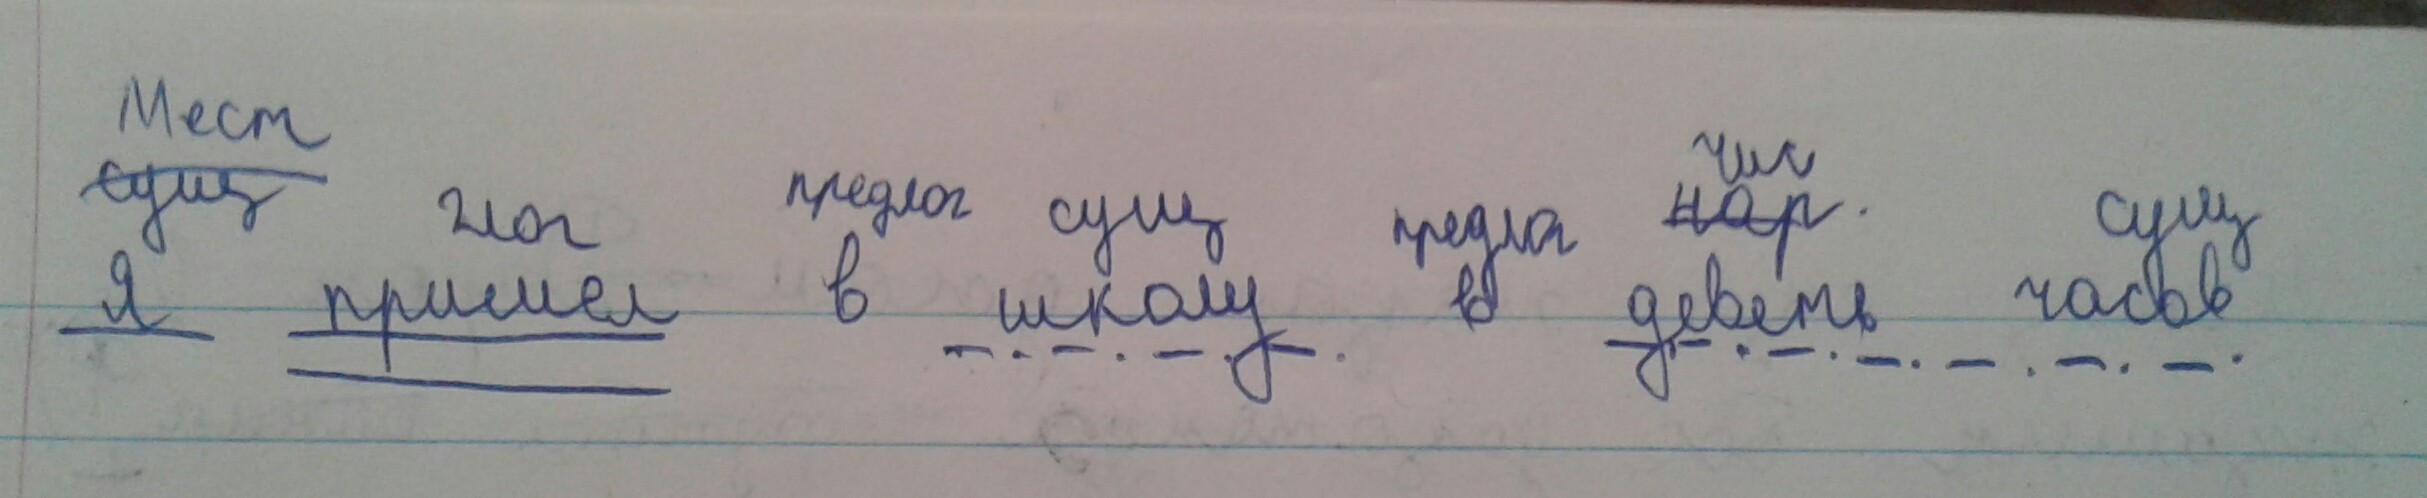 Мест чис
сущ глаг предлог сущ предлог нар. сущ
Я пришел в школу в деветь часов